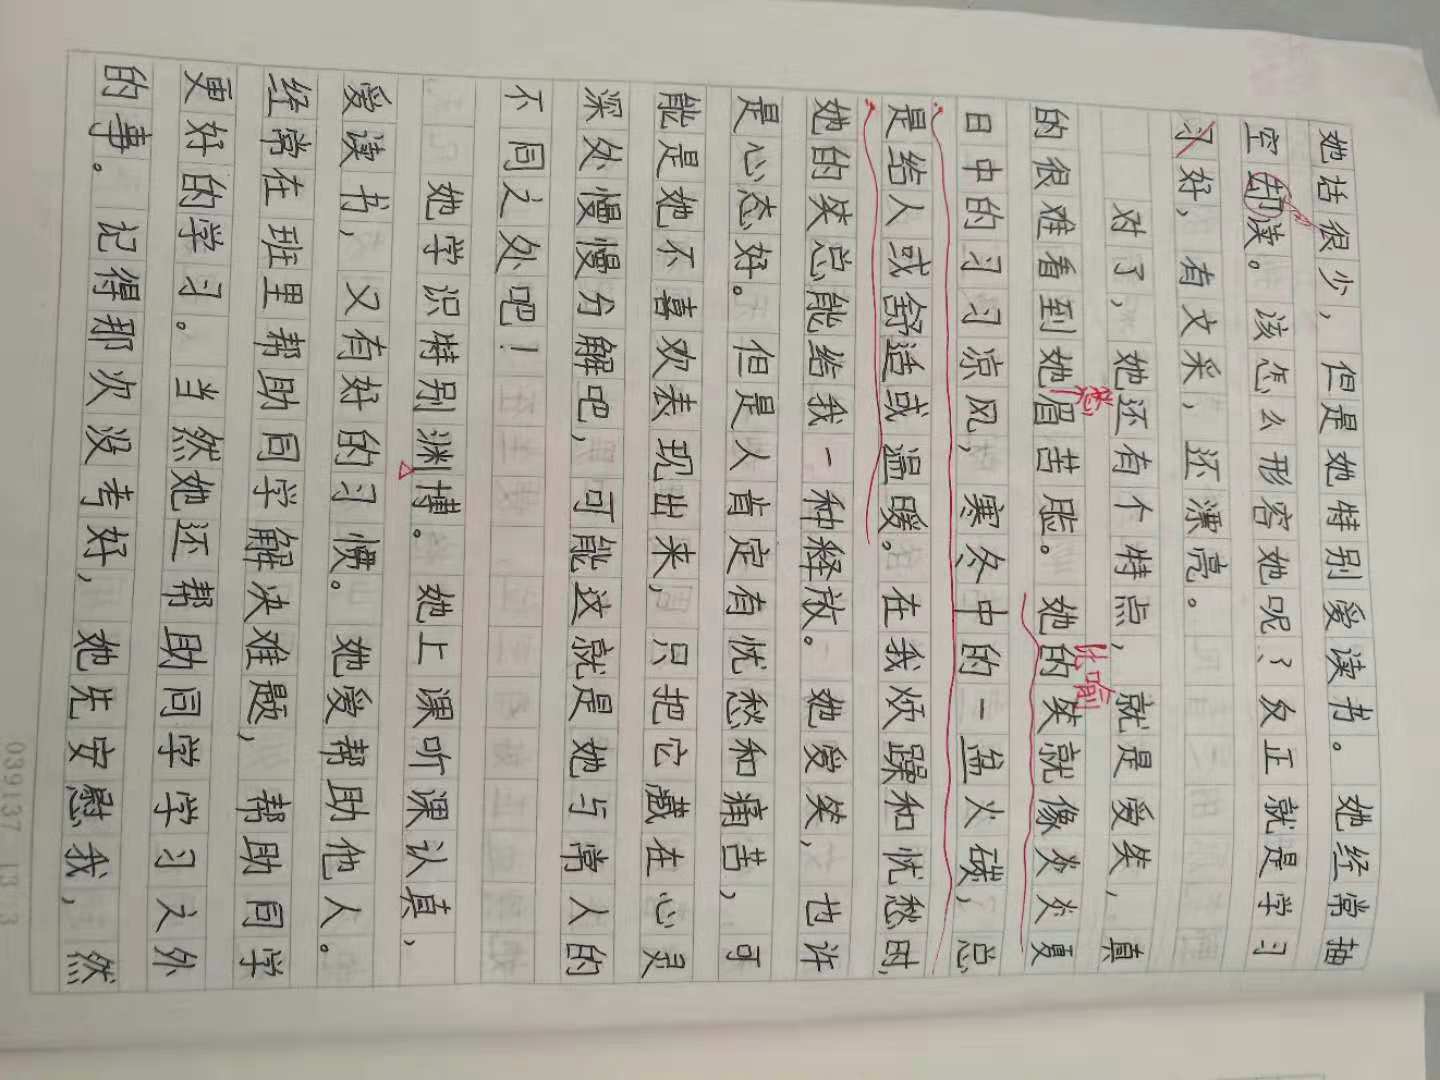 她话很少，但是她特别爱读书。她经常抽
空去读。该怎么形容她呢？反正就是学习
习好，有文采，还漂亮。
对了，她还有个特点，就是爱笑，真
的很难看到她眉苦脸。她的笑就像炎炎夏
愁
比喻
日中的习习凉风，寒冬中的一盆火碳，总
是给人或舒适或温暖。在我烦躁和忧愁时，
她的笑总能给我一种释放。她爱笑，也许
是心态好。但是人肯定有忧愁和痛苦，可
能是她不喜欢表现出来，只把它藏在心灵
深处慢慢分解吧，可能这就是她与常人的
不同之处吧！
她学识特别渊博。她上课听课认真，
爱读书，又有好的习惯。她爱帮助他人。
经常在班里帮助同学解决难题，帮助同学
更好的学习。当然她还帮助同学学习之外
的事。记得那次没考好，她先安慰我，然